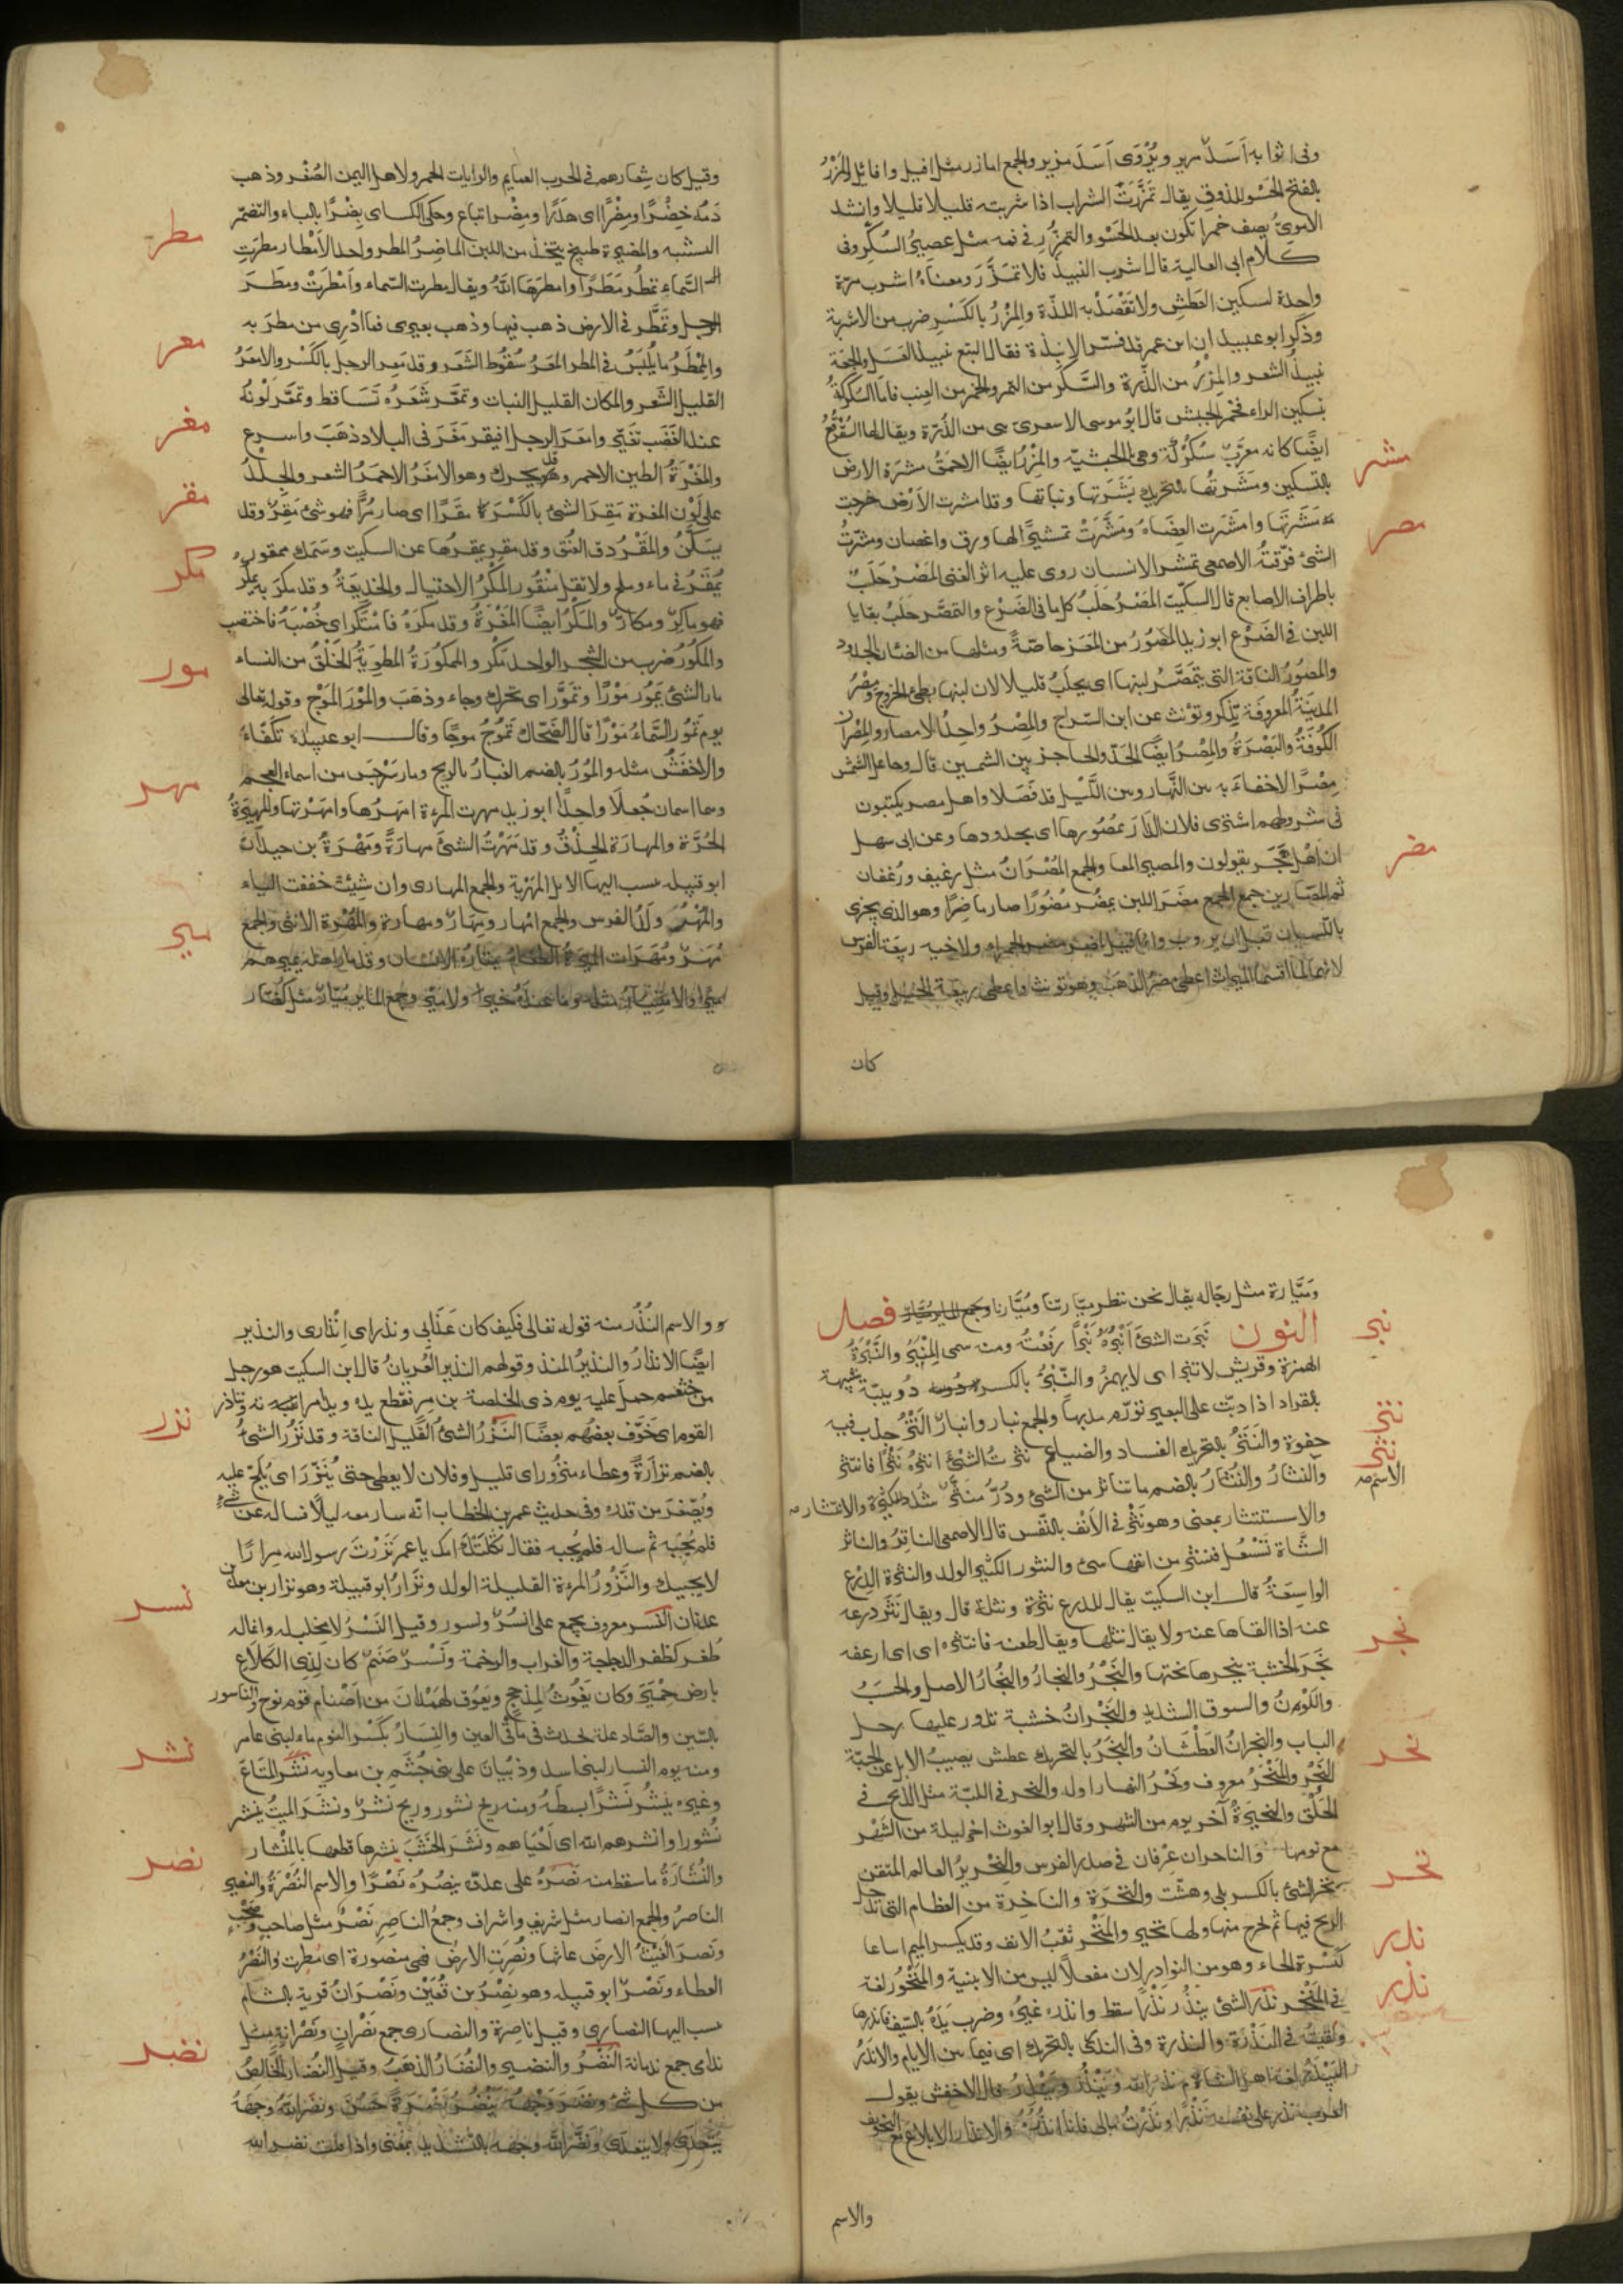 وفى اثوابه اسد مزير ويروى اسد مزير والجمع امازر مثل افيل وافائل المزر
بالفتح الحسو للذوق يقال تمزرت الشراب اذا شربته قليلا قليلا وانشد
الاموى يصف خمرا تكون بعد الحسو والتمزر فى فمه مثل عصير السكر وفى
كلام ابى العالية قال اشرب النبيذ فلا تمزر ومعناه اشرب مرة
واحدة لسكين العطش ولا تقصد به اللذة والمزر بالكسر ضرب من الاشربة
وذكر ابو عبيد ان ابن عمر قد فسر الانبذة فقال البتع نبيذ العسل والجعة
نبيذ الشعير والمزر من الذرة والسكر من التمر والخمر من العنب فاما السكركة
بتسكين الراء فخمر الحبش قال ابو موسى الاسعرى هى من الذرة ويقال لها السقرقع
ايضا كانه معرب سكركة وهى بالحبشية والمزر ايضا الاحمق مشرة الارض
مشر
بالتسكين ومشرتها بالتحريك بشرتها ونباتها وقد امشرت الارض خرجت
مشرتها وامشرت العضاه ومشرت تمشيرا لها ورق واغصان ومشرت
مصر
الشئ فرقته الاصمعى تمشر الانسان روى عليه اثر الغنى المصر حلب
باطراف الاصابع قال السكيت المصر حلب كل ما فى الضرع والتمصر حلب بقايا
اللبن فى الضرع ابو زيد المصور من المعز خاصة ومثلها من الضئان الجدود
والمصور الناقة التى يتمصر لبنها اى يحلب قليلا لان لبنها بطئ الخروج ومصر
المدينة المعروفة يذكر وتؤنث عن ابن السراج والمصر واحد الامصار والمصران
الكوفة والبصرة والمصر ايضا الحد والحاجز بين الشيئين قال وجاعل الشمس
مصرا لاخفاء به بين النهار وبين الليل قد فصلا واهل مصر يكتبون
فى شروطهم اشترى فلان الدار بمصورها اى بحدودها وعن ابى سهل
ان اهل هجر يقولون والمصير المعا والجمع المصران مثل رغيف ورغفان
مضر
ثم المصارين جمع الجمع مضر اللبن يمضر مضورا صار ماضرا وهو الذى يحذى
باللسان قبل ان يروب وانما قيل لمضر مضر الحمراء ولاخيه ربيعة الفرس
لانهما لما اقتسما الميراث اعطى مضر الذهب وهو تونث واعطى ربيعة الخيل وقيل
كان
وقيل كان شعارهم فى الحرب العمايم والرايات الحمر ولاهل اليمن الصفر وذهب
دمه خضرا ومضرا اى هدرا ومضر اتباع وحكى الكساى بضرا بالباء والتمضر
مطر
التشبه والمضيرة طبيخ يتخذ من اللبن الماضر المطر واحد الامطار مطرت
السماء تمطر مطرا وامطرها الله ويقال مطرت السماء وامطرت ومطر
الرجل وتمطر فى الارض ذهب فيها وذهب بعيرى فما ادرى من مطر به
معر
والممطر ما يلبس فى المطر المعر سقوط الشعر وقد معر الرجل بالكسر والامعر
القليل الشعر والمكان القليل النبات وتمعر شعره تساقط وتمعر لونه
مغر
عند الغضب تغير وامعر الرجل افيقر مغر فى البلاد ذهب واسرع
والمغرة الطين الاحمر وقد يحرك وهو الامغر الاحمر الشعر والجلد
مقر
على لون المغرة مقر الشئ بالكسر مقرا اى صار مرا فهو شئ مقر وقد
يسكن والمقر دق العنق وقد مقر يمقرها عن السكيت وسمك ممقور
مكر
يمقر فى ماء وملح ولا تقل منقور المكر الاحتيال والخديعة وقد مكر به يمكر
فهو ماكر ومكار والمكر ايضا المغرة وقد مكره فامتكر اى خضبه فاختضب
والمكور ضرب من الشجر الواحد مكر والممكورة المطوية الخلق من النساء
مور
مار الشئ يمور مورا وتمور اى تحرك وجاء وذهب والمور الموج وقوله تعالى
يوم تمور السماء مورا قال الضحاك تموج موجا وقال ابو عبيدة تكفاء
والاخفش مثله والمور بالضم الغبار بالريح ومار سرجس من اسماء العجم
مهر
وهما اسمان جعلا واحدا ابو زيد مهرت المرءة امهرها وامهرتها والمهيرة
الحرة والمهارة الحذق وقد مهرت الشئ مهارة ومهرة بن حيدان
ابو قبيله نسب اليها الابل المهرية والجمع المهارى وان شيئت خففت الياء
والمهر ولد الفرس والجمع امهار ومهار ومهارة والمهرة الانثى والجمع
مير
مهر ومهرات الميرة الطعام يمتاره الانسان وقد مار اهله يميرهم
ميرا والامتيار مثله وما عنده خير ولا مير وجمع الماير ميار مثل كفار
وميارة مثل رجاله يقال نحن ننتظر ميارتنا وميارنا
فصل النون
نبر
نبرت الشئ انبره نبرا رفعته ومنه سمى المنبر والنبرة
الهمزة وقريش لا تنبر اى لا يهمز والنبر بالكسر دويبة شبيهة
بالقراد اذا دبت على البعير تورم مدبها والجمع نبار وانبار النتر جذب فيه
نتر
جفوة والنتر بالتحريك الفساد والضياع نثرت الشئ انثره نثرا فانتثر
نثر
الاسم صه
والنثار والنثار بالضم ما تناثر من الشئ ودر منثر شدد للكثرة والانتثار
والاستنثار بمعنى وهو نثر فى الانف بالنفس قال الاصمعى الناثر والناثر
الشاة تسعل فينثر من انفها شئ والنثور الكثير الولد والنثرة الدرع
الواسعة قال ابن السكيت يقال للدرع نثرة ونثلة قال ويقال نثر درعه
عنه اذا القاها عنه ولا يقال نثلها ويقال طعنه فانثره اى ارعفه
نجر
نجر الخشبة ينجرها نحتها والنجر والنجار والنجار الاصل والحسب
واللون والسوق الشديد والنجران خشبة تدور عليها رجل
الباب والنجران العطشان والنجر بالتحريك عطش يصيب الابل عن الحبة
نحر
النحر والمنحر معروف ونحر النهار اوله والنحر فى اللبة مثل الذبح فى
الحلق والنحيرة آخر يوم من الشهر وقال ابو الغوث اخر ليلة من الشهر
مع يومها والناحران عرقان فى صدر الفرس والنحرير العالم المتقن
نخر
نخر الشئ بالكسر بلى وهشت والنخرة والناخرة من العظام التى تدخل
الريح فيها ثم تخرج منها ولها نخير والمنخر ثقب الانف وقد يكسر الميم اتباعا
لكسرة الخاء وهو من النوادر لان مفعلا ليس من الابنية والمنخور لغة
ندر
فى المنخر ندر الشئ يندر ندرا سقط واندره غيره وضرب يده بالسيف فاندرها
ولقيته فى الندرة والندرة وفى الندرى بالتحريك اى فيما بين الايام والاندر
نذر
البيدر لغة اهل الشام نذر لله وينذر وينذر قال الاخفش يقول
العرب نذر على نفسه نذرا ونذرت مالى فانا انذره والانذار الابلاغ مع التخويف
والاسم
والاسم النذر منه قوله تعالى فكيف كان عذابى ونذر اى انذارى والنذير
ايضا الانذار والنذير المنذر وقولهم النذير العريان قال ابن السكيت هو رجل
من خثعم حمل عليه يوم ذى الخلصة بن مر فقطع يده ويد امراته وتناذر
نزر
القوم اى خوف بعضهم بعضا النزر الشئ القليل الناقة وقد نزر الشئ
بالضم نزارة وعطاء منزور اى قليل وفلان لا يعطى حتى ينزر اى يلح عليه
ويصغر من قدره وفى حديث عمر بن الخطاب انه سار معه ليلا فساله عن شئ
فلم يجبه ثم ساله فلم يجبه فقال ثكلتك امك يا عمر نزرت رسول الله مرارا
لا يجيبك والنزور المرءة القليلة الولد ونزار ابو قبيلة وهو نزار بن معد بن
نسر
عدنان النسر معروف يجمع على انسر ونسور وقيل النسر لا مخلب له وانما له
ظفر كظفر الدجاجة والغراب والرخمة ونسر صنم كان لذى الكلاع
بارض حمير وكان يغوث لمذحج ويعوق لهمدان من اصنام قوم نوح والناسور
بالسين والصاد علة تحدث فى مآقى العين والنسار بكسر النون ماء لبنى عامر
نشر
ومنه يوم النسار لبنى اسد وذبيان على بنى جشم بن معاويه نشر المتاع
وغيره ينشر نشرا بسطه ومنه ريح نشور وريح نشر ونشر الميت ينشر
نشورا وانشرهم الله اى احياهم ونشر الخشب ينشرها قطعها بالمنشار
نصر
والنشارة ما سقط منه نصره على عدوه ينصره نصرا والاسم النصرة والنصير
الناصر والجمع انصار مثل شريف واشراف وجمع الناصر نصر مثل صاحب وصحب
ونصر الغيث الارض غاثها ونصرت الارض فهى منصورة اى مطرت والنصر
العطاء ونصر ابو قبيله وهو نصر بن قعين ونصران قرية بالشام
نسب اليها النصارى وقيل ناصرة والنصارى جمع نصران ونصرانة مثل
نضر
ندامى جمع ندمانة النضر والنضير والنضار الذهب وقيل النضار الخالص
من كل شئ ونضر وجهه ينضر نضرة حسن ونضر الله وجهه
يتعدى ولا يتعدى ونضر الله وجهه بالتشديد بمعنى واذا قلت نضر الله